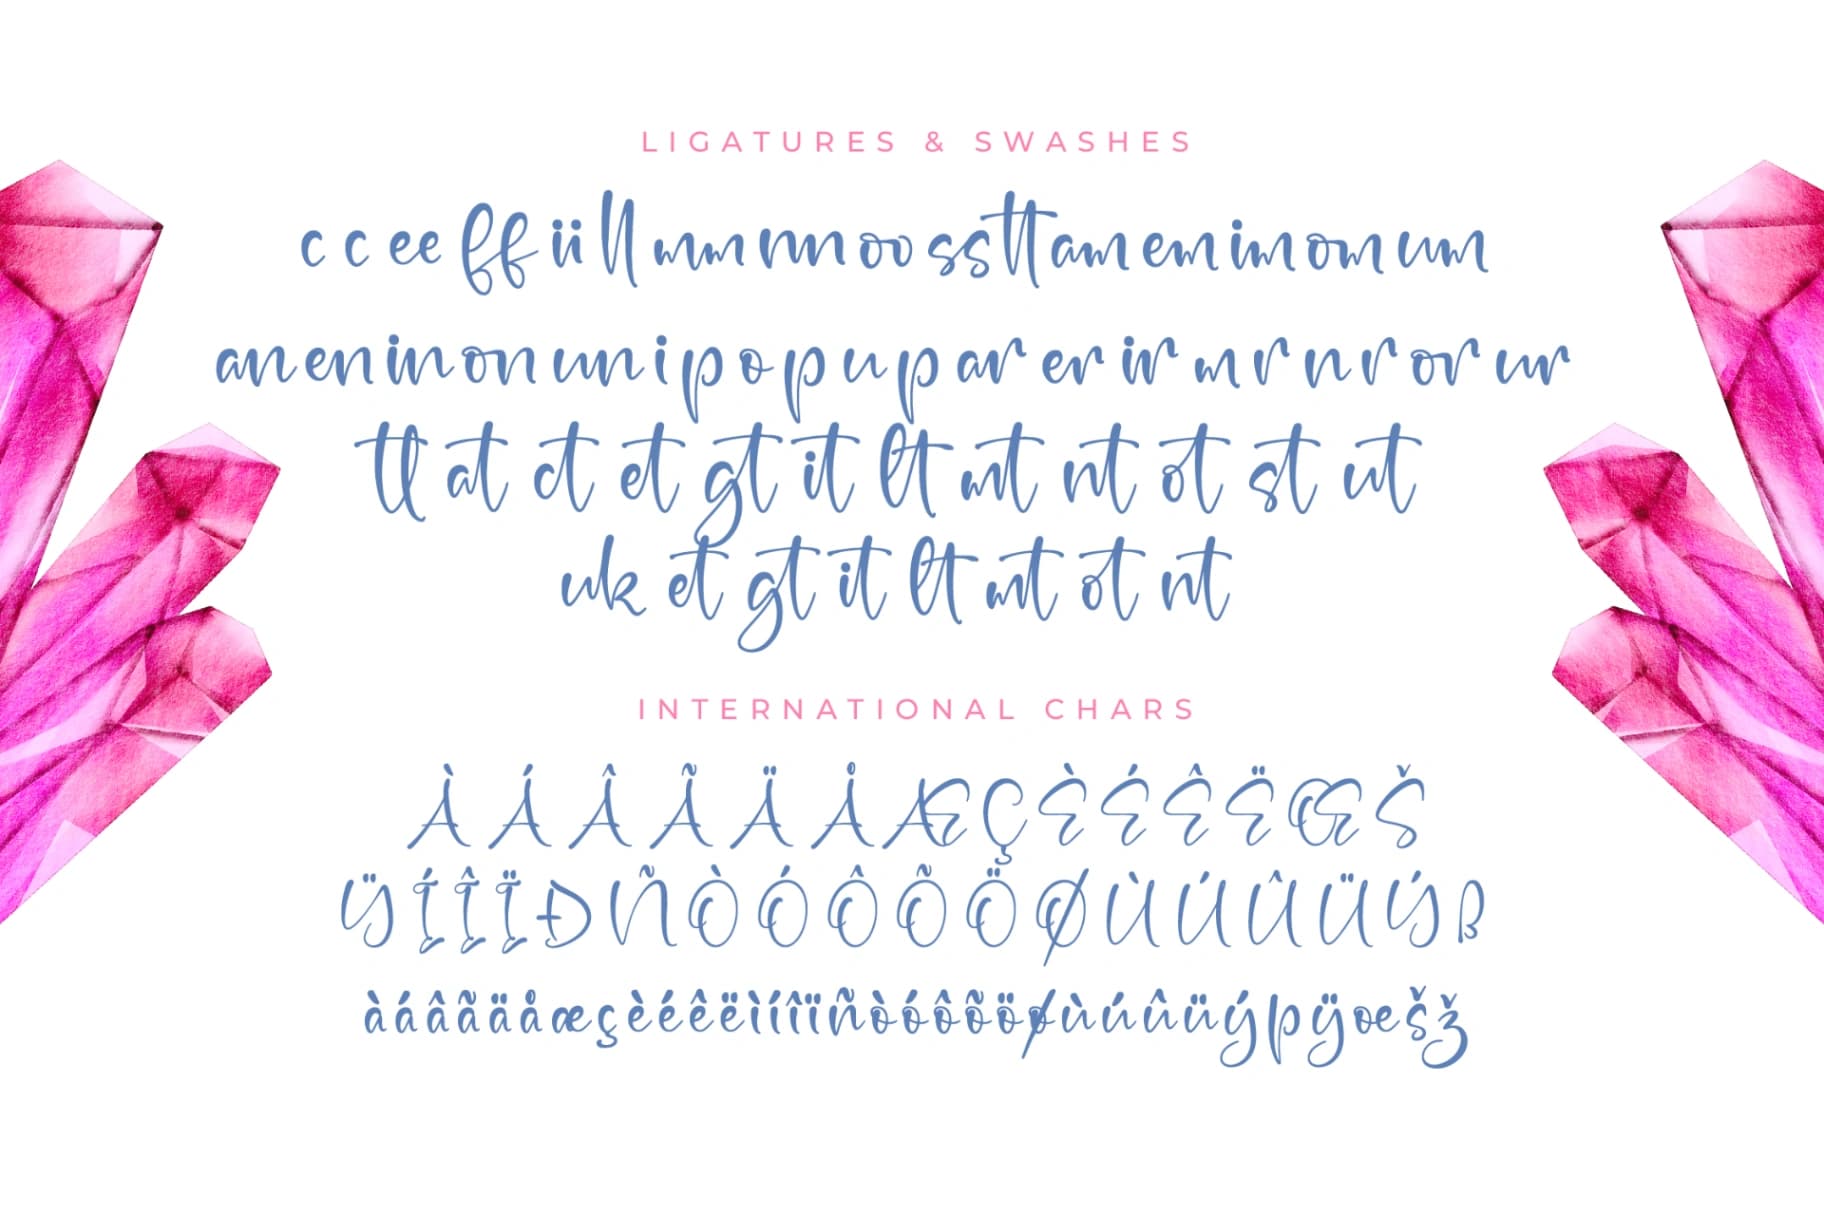 LIGATURES & SWASHES
c c ee ff ii ll mm nn oo ss tt am em im om um
an en in on un ip op up ar er ir mr nr or ur
tl at ct et gt it lt mt nt ot st ut
uk et gt it lt mt ot nt
INTERNATIONAL CHARS
À Á Â Ã Ä Å Æ Ç È É Ê Ë Œ Š
Ÿ Í Î Ï Ð Ñ Ò Ó Ô Õ Ö Ø Ù Ú Û Ü Ý ß
à á â ã ä å æ ç è é ê ë ì í î ï ñ ò ó ô õ ö ø ù ú û ü ý þ ÿ œ š ž